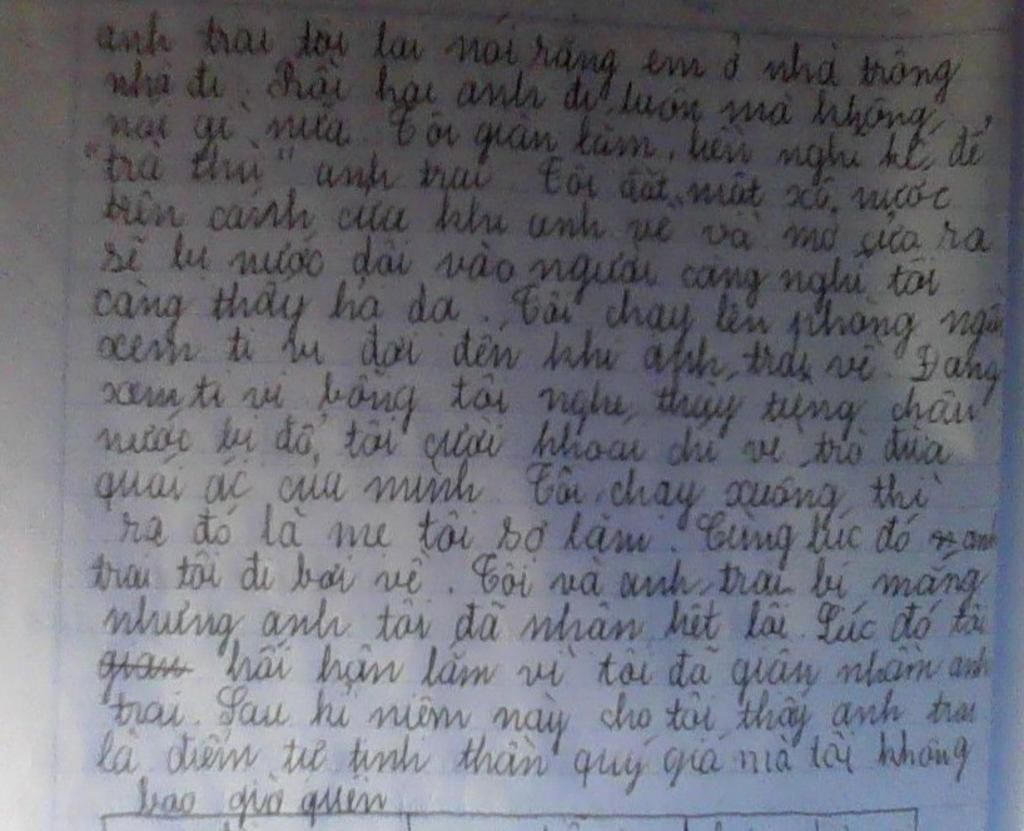 anh trai tôi lại nói rằng em ở nhà trông
nhà đi. Rồi hai anh đi luôn mà không
nói gì nữa. Tôi giận lắm, liền nghĩ kế để
"trả thù" anh trai. Tôi đặt một xô nước
trên cánh cửa khi anh về và mở cửa ra
sẽ bị nước dội vào người càng nghĩ tôi
càng thấy hả dạ. Tôi chạy lên phòng ngồi
xem ti vi đợi đến khi anh trai về. Đang
xem ti vi bỗng tôi nghe thấy tiếng chậu
nước bị đổ, tôi cười khoái chí vì trò đùa
quái ác của mình. Tôi chạy xuống thì
ra đó là mẹ tôi sợ lắm. Cùng lúc đó anh
trai tôi đi bơi về. Tôi và anh trai bị mắng
nhưng anh tôi đã nhận hết lỗi. Lúc đó tôi
giận hối hận lắm vì tôi đã giận nhầm anh
trai. Sau kỉ niệm này cho tôi thấy anh trai
là điểm tự tinh thần quý giá mà tôi không
bao giờ quên